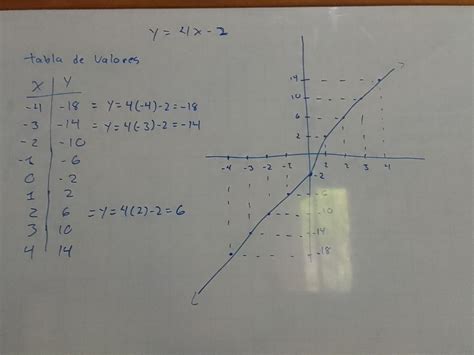 y = 4x - 2
tabla de valores
x y
-4 -18 = y = 4(-4)-2 = -18
-3 -14 = y = 4(-3)-2 = -14
-2 -10
-1 -6
0 -2
1 2
2 6 = y = 4(2)-2 = 6
3 10
4 14
14
10
6
2
-4 -3 -2 -1 1 2 3 4
-2
-6
-10
-14
-18